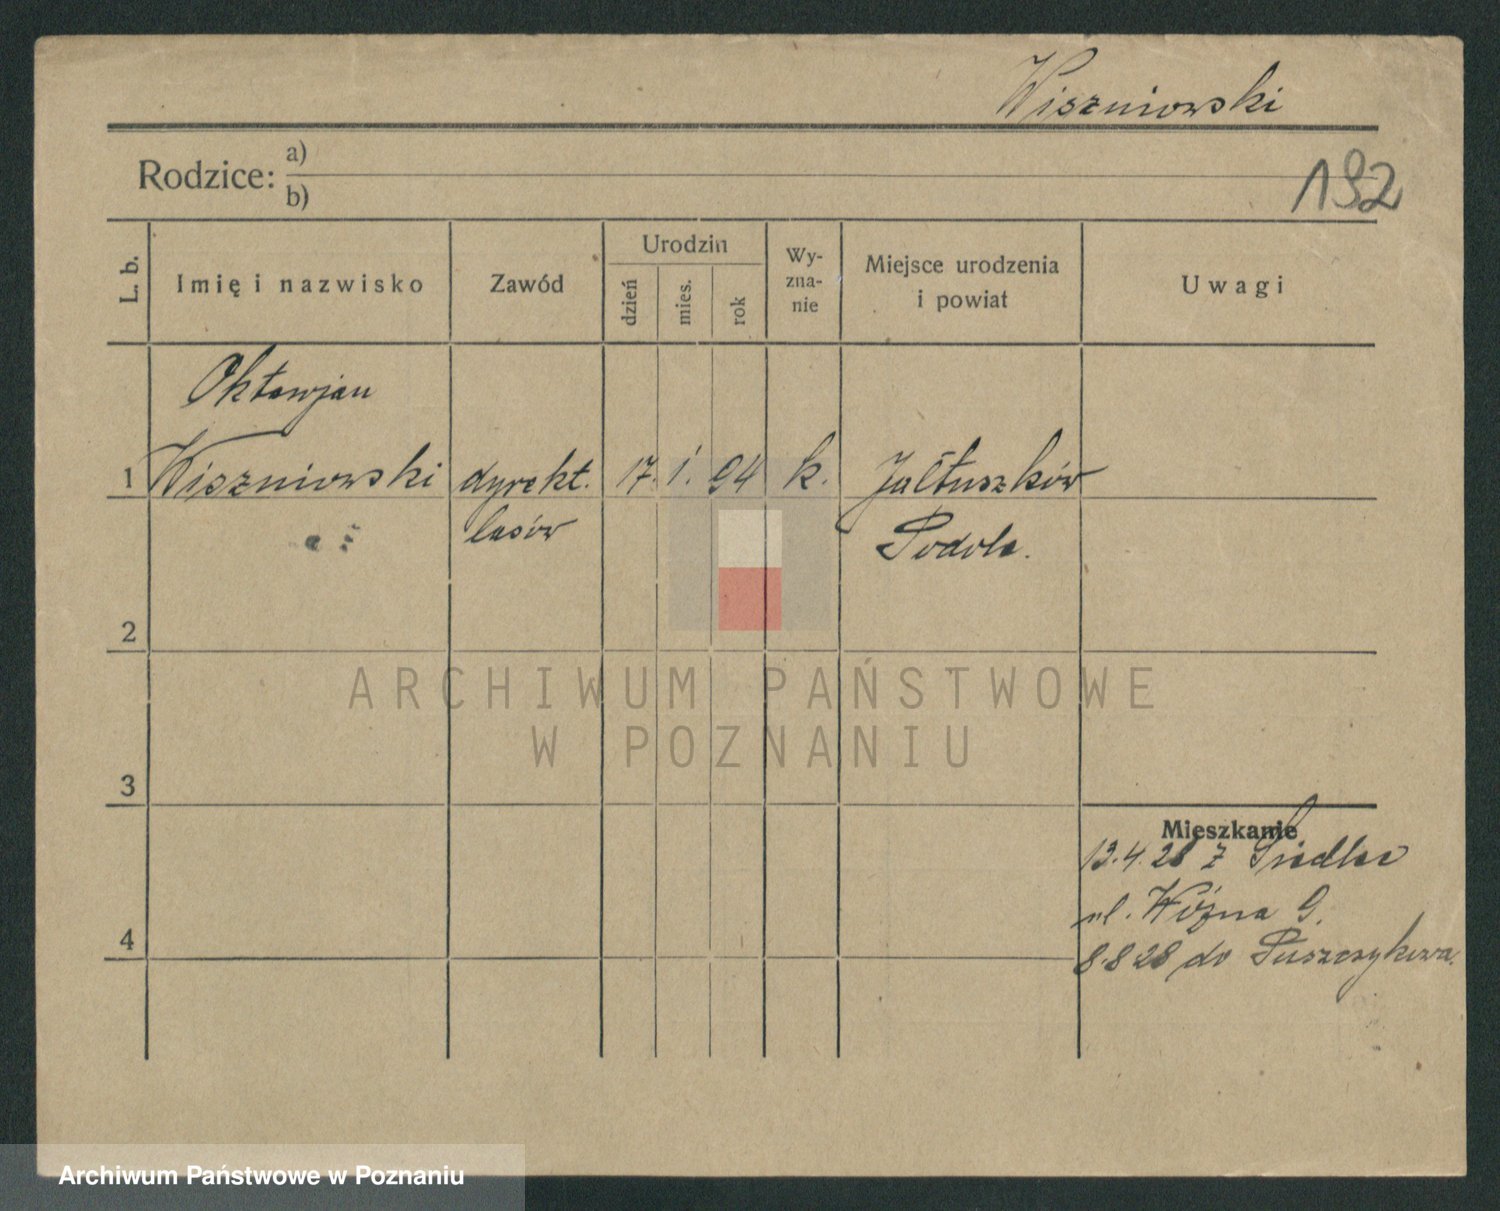 Wiszniowski
Rodzice: a)
b)
192
L. b.
Imię i nazwisko
Zawód
Urodzin
dzień
mies.
rok
Wy-
zna-
nie
Miejsce urodzenia
i powiat
Uwagi
Oktawjan
1 Wiszniowski dyrekt. 17. 1. 94 k. Jałtuszków
lasów
Podole.
2
ARCHIWUM PAŃSTWOWE
W POZNANIU
3
Mieszkanie
13.4.28 z Siedlec
ul. Woźna 9.
4
8.8 28 do Puszczykowa.
Archiwum Państwowe w Poznaniu